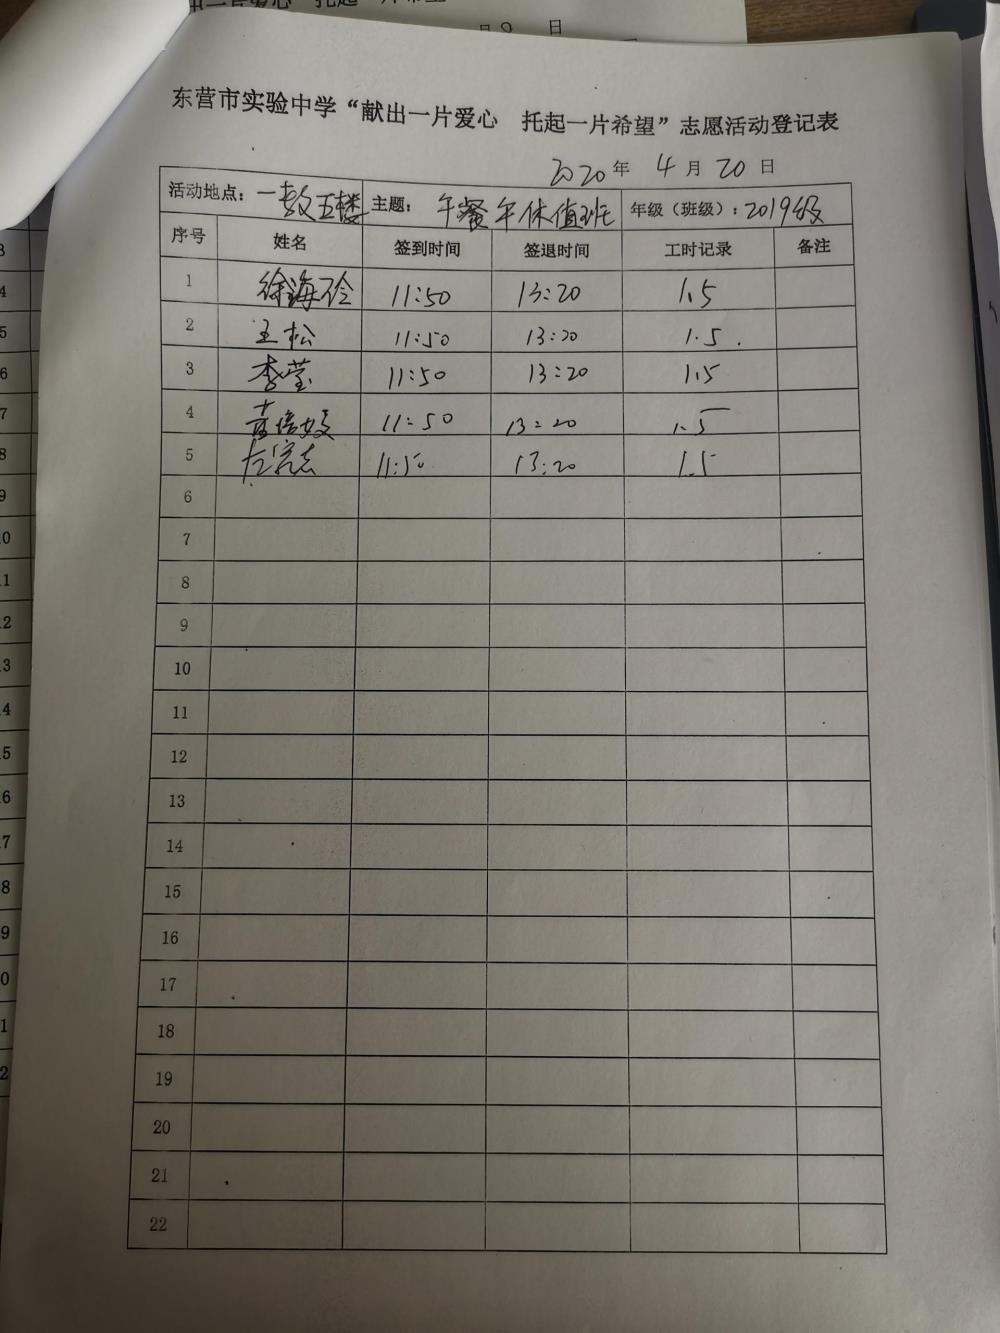 月 9 日
东营市实验中学“献出一片爱心 托起一片希望”志愿活动登记表
2020 年 4 月 20 日
活动地点：一教五楼 主题：午餐午休值班 年级（班级）：2019级
序号 姓名 签到时间 签退时间 工时记录 备注
1 徐海玲 11:50 13:20 1.5
2 王松 11:50 13:20 1.5
3 李莹 11:50 13:20 1.5
4 11:50 13:20 1.5
5 11:50 13:20 1.5
6
7
8
9
10
11
12
13
14
15
16
17
18
19
20
21
22